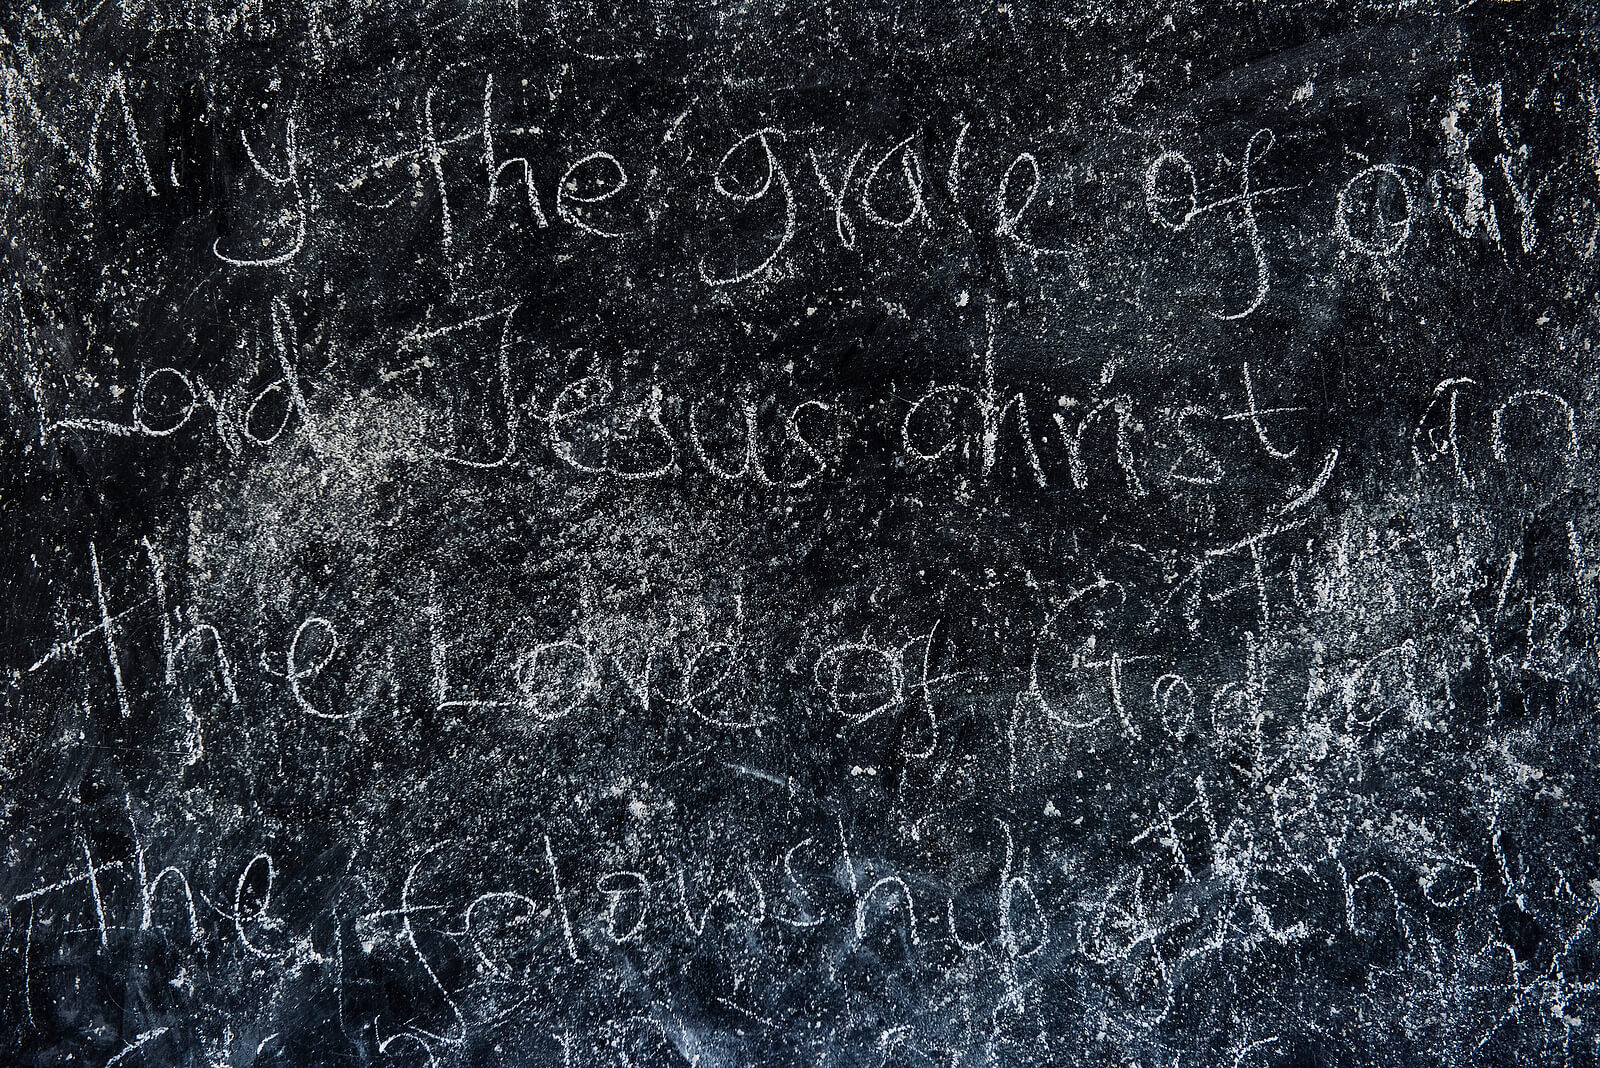 May the grace of our
Lord Jesus christ, in
the Love of God
the felowship of the holy